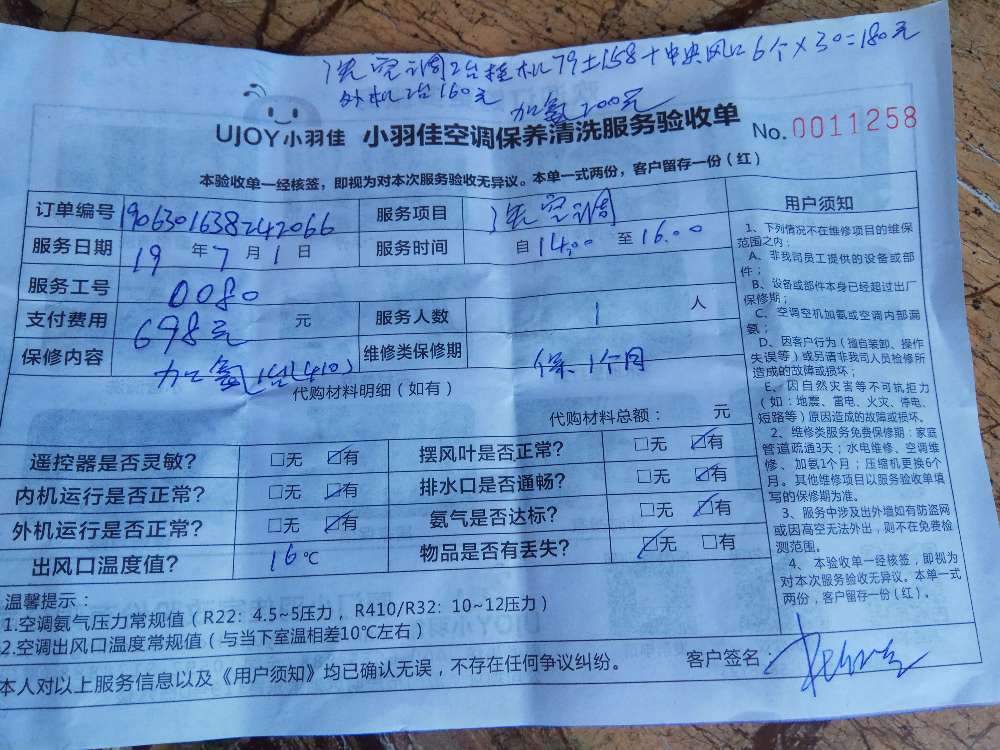 洗空调2台挂机79土158十中央风口6个×30=180元
外机2台160元
加氨200元
UJOY小羽佳 小羽佳空调保养清洗服务验收单 No.0011258
本验收单一经核签，即视为对本次服务验收无异议。本单一式两份，客户留存一份（红）
订单编号 1906301638242066 服务项目 洗空调
服务日期 19 年 7 月 1 日 服务时间 自 14:00 至 16:00
服务工号 0080
支付费用 698元 元 服务人数 1 人
保修内容 加氨1台(410) 维修类保修期 保1个月
代购材料明细（如有）
代购材料总额： 元
遥控器是否灵敏? □无 ☑有 摆风叶是否正常? □无 ☑有
内机运行是否正常? □无 ☑有 排水口是否通畅? □无 ☑有
外机运行是否正常? □无 ☑有 氨气是否达标? □无 ☑有
出风口温度值? 16℃ 物品是否有丢失? ☑无 □有
用户须知
1、下列情况不在维修项目的维保
范围之内：
A、非我司员工提供的设备或部
件；
B、设备或部件本身已经超过出厂
保修期；
C、空调空机加氨或空调内部漏
氨；
D、因客户行为（擅自装卸、操作
失误等）或另请非我司人员检修所
造成的故障或损坏；
E、因自然灾害等不可抗拒力
（如：地震、雷电、火灾、停电、
短路等）原因造成的故障或损坏。
2、维修类服务免费保修期：家庭
管道疏通3天；水电维修、空调维
修、加氨1个月；压缩机更换6个
月。其他维修项目以服务验收单填
写的保修期为准。
3、服务中涉及出外墙如有防盗网
或因高空无法外出，则不在免费检
测范围。
4、本验收单一经核签，即视为
对本次服务验收无异议。本单一式
两份，客户留存一份（红）。
温馨提示：
1.空调氨气压力常规值（R22：4.5~5压力，R410/R32：10~12压力）
2.空调出风口温度常规值（与当下室温相差10℃左右）
本人对以上服务信息以及《用户须知》均已确认无误，不存在任何争议纠纷。 客户签名：